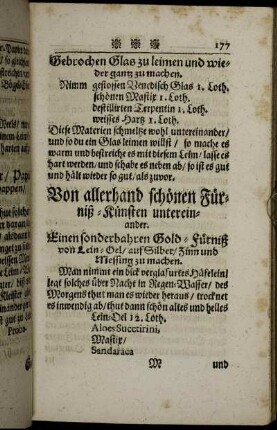 ❋ ❋ ❋ 177
Gebrochen Glas zu leimen und wie-
der gantz zu machen.
Nimm gestossen Venedisch Glas 1. Loth.
schönen Mastix 1. Loth.
destillirten Terpentin 1. Loth.
weisses Hartz 1. Loth.
Diese Materien schmeltze wohl untereinander/
und so du ein Glas leimen willst/ so mache es
warm und bestreiche es mit diesem Leim/ lasse es
hart werden/ und schabe es neben ab/ so ist es gut
und hält wieder so gut/ als zuvor.
Von allerhand schönen Für-
niß-Künsten unterein-
ander.
Einen sonderbahren Gold-Fürniß
von Lein-Oel/ auf Silber/ Zinn und
Messing zu machen.
Man nimmt ein dick verglasurtes Häfelein/
legt solches über Nacht in Regen-Wasser/ des
Morgens thut man es wieder heraus/ trocknet
es inwendig ab/ thut dann schön altes und helles
Lein-Oel 12. Loth.
Aloes Succotrini,
Mastix/
Sandaraca
M und